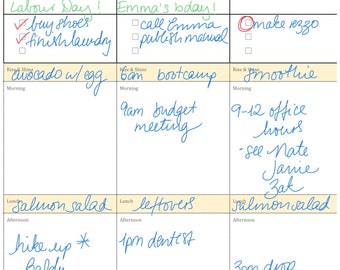 Labour Day!
buy shoes
finish laundry
Rise & Shine
avocado w/ egg
Morning
Lunch
salmon salad
Afternoon
hike up *
Baldy
Emma's bday!
call Emma
publish manual
Rise & Shine
6am bootcamp
Morning
9am budget
meeting
Lunch
leftovers
Afternoon
1pm dentist
make rezzo
Rise & Shine
smoothie
Morning
9-12 office
hours
-see Nate
Jamie
Zak
Lunch
salmon salad
Afternoon
3pm drop